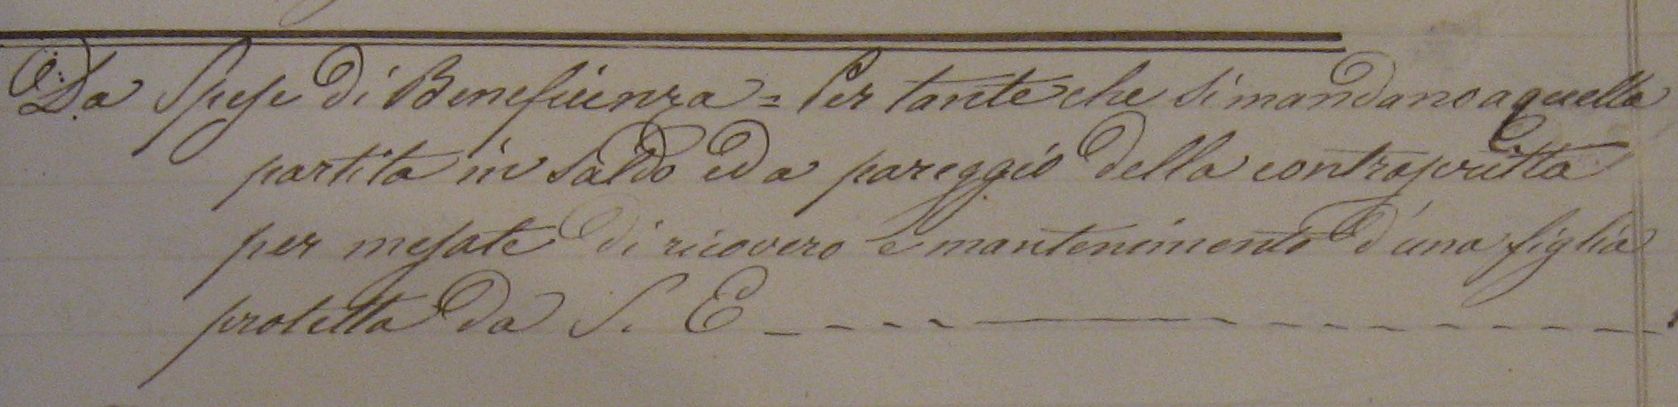 Da Spese di Beneficienza = Per tante che si mandano a quella
partita in saldo ed a pareggio della contrapritta
per mesate di ricovero e mantenimento d'una figlia
protetta da S. E